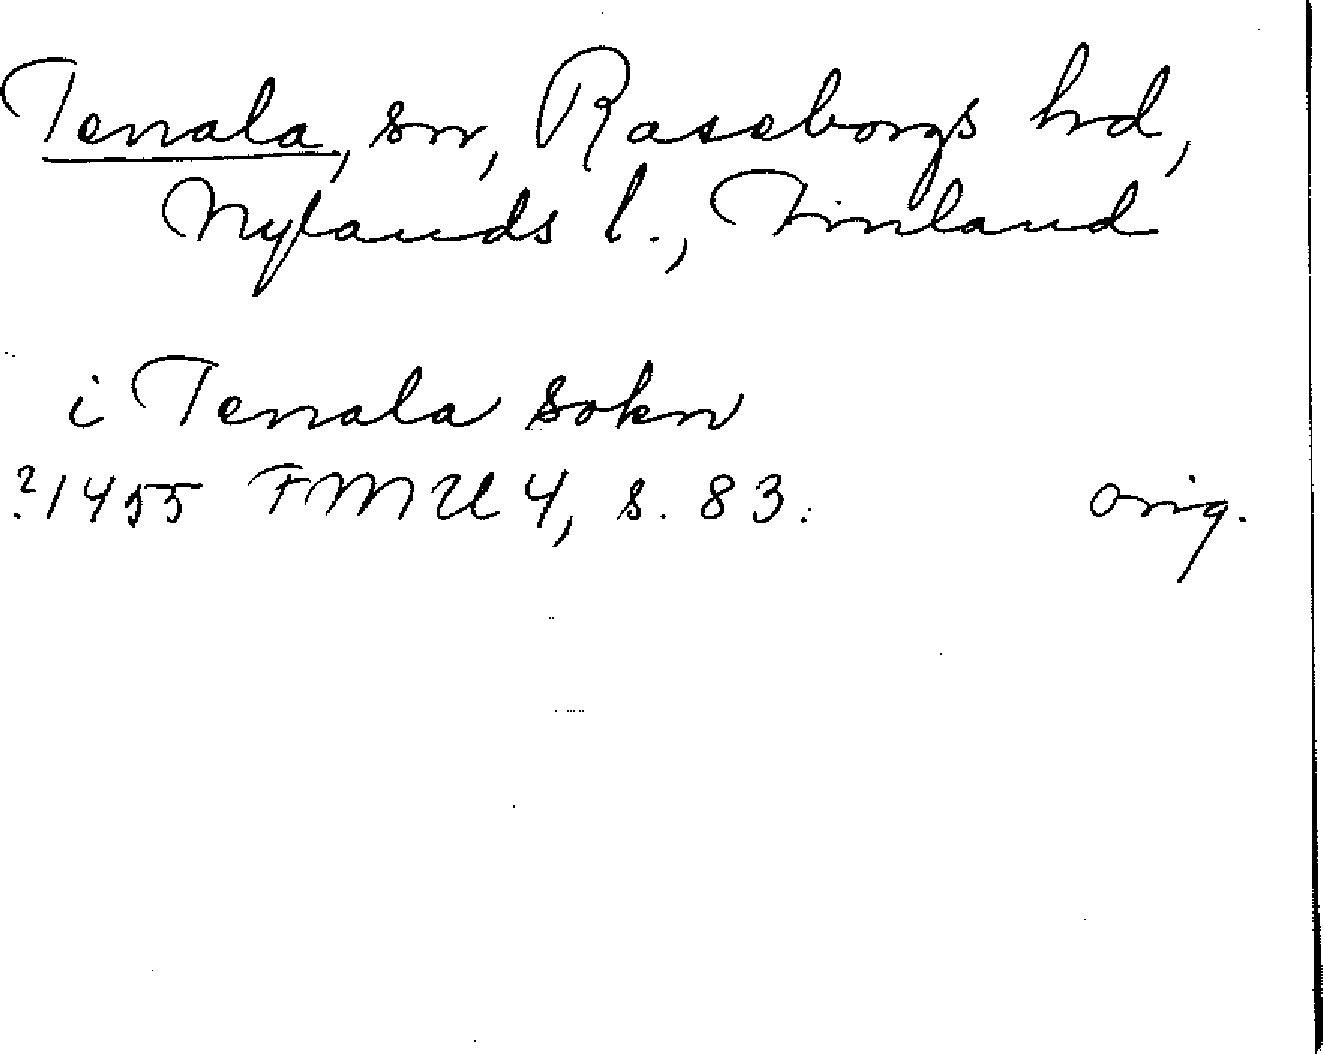 Tenala, sn, Raseborgs hd,
Nylands l., Finland
i Tenala sokn
?1455 FMU 4, s. 83. orig.